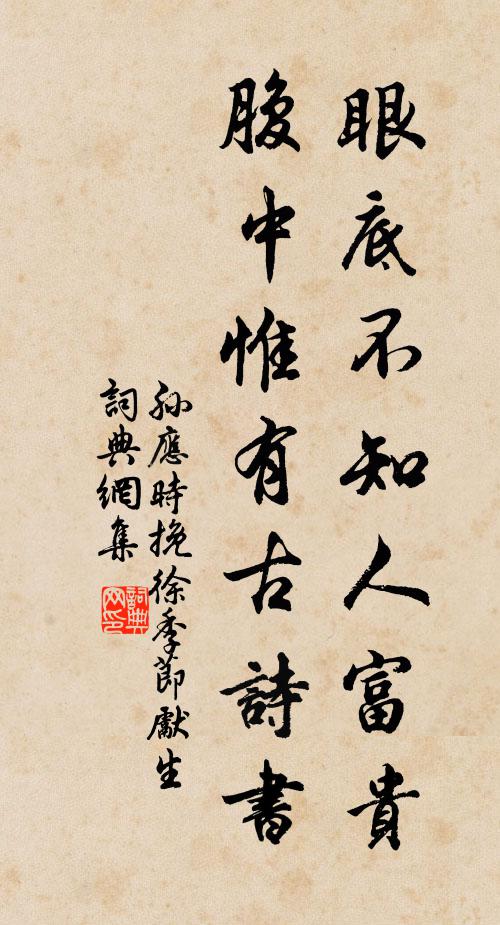 眼底不知人富貴
腹中惟有古詩書
孫應時挽徐季節獻生
詞典網集
詞典网印